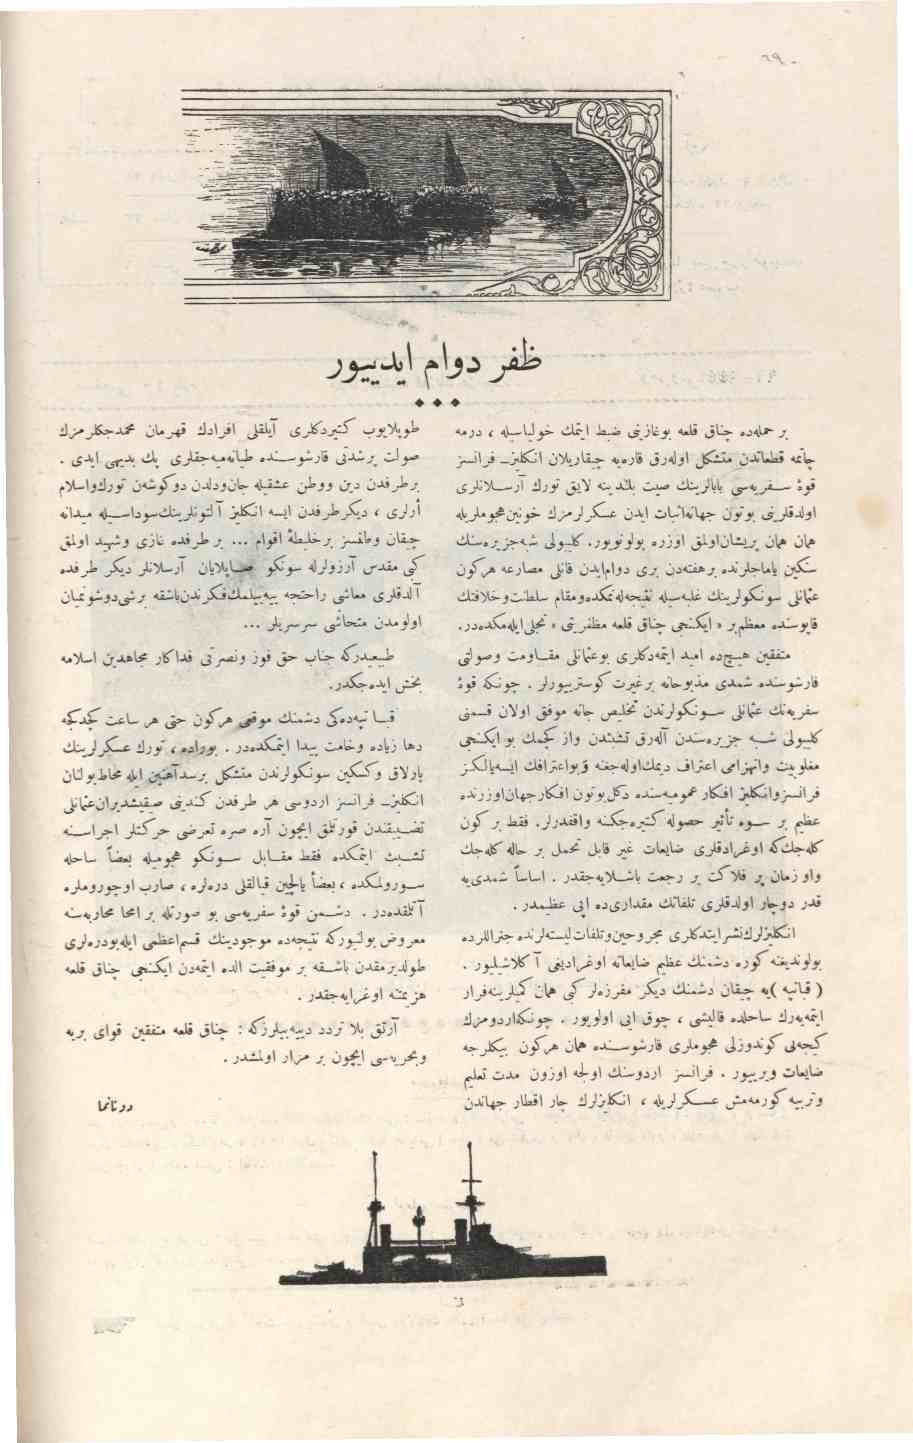 ظفر دوام ايدييور
بر حمله‌ده چناق قلعه بوغازينى ضبط ايتمك خولياسيله ، درمه
چاتمه قطعاتدن متشكل اوله‌رق قاره‌يه چيقاريلان انكليزـ فرانسز
قوهٔ سفريه‌سى بابالرينك صيت بلندينه لايق تورك آرسلانلرى
اولدقلرينى بوتون جهانه‌اثبات ايدن عسكرلرمزك خونين‌هجوملريله
همان همان پريشان‌اولمق اوزره بولونويور. كليبولى شبه‌جزيره‌سنك
سنكين ياماجلرنده برهفته‌دن برى دوام‌ايدن قانلى مصارعه هركون
عثمانلى سونكولرينك غلبه‌سيله نتيجه‌له‌نمكده‌ومقام سلطنت‌وخلافتك
قاپوسنده معظم‌بر « ايكنجى چناق قلعه مظفريتى » تجلى‌ايله‌مكده‌در.
متفقين هيچ‌ده اميد ايتمه‌دكلرى بوعثمانلى مقاومت وصولتى
قارشوسنده شمدى مذبوحانه برغيرت كوستريبورلر . چونكه قوهٔ
سفريه‌نك عثمانلى سونكولرندن تخليص جانه موفق اولان قسمنى
كليبولى شبه جزيره‌سندن آله‌رق تشبثدن واز كچمك بو ايكنجى
مغلوبيت وانهزامى اعتراف ديمك‌اوله‌جغنه وبواعترافك ايسه‌يالكز
فرانسزوانكليز افكار عموميه‌سنده دكل‌بوتون افكارجهان‌اوزرنده
عظيم بر سوء تأثير حصوله كتيره‌جكنه واقفدرلر. فقط بر كون
كله‌جك‌كه اوغرادقلرى ضايعات غير قابل تحمل بر حاله كله‌جك
واو زمان پر فلاكت بر رجعت باشلايه‌جقدر. اساساً شمدى‌يه
قدر دوچار اولدقلرى تلفاتك مقدارى‌ده اپى عظيمدر.
انكليزلرك‌نشرايتدكلرى مجروحين‌وتلفات‌ليسته‌لرنده جنراللرده
بولونديغنه كوره دشمنك عظيم ضايعاته اوغراديغى آكلاشيليور .
( قباتپه )يه چيقان دشمنك ديكر مفرزه‌لر كبى همان كميلرينه‌فرار
ايتمه‌يه‌رك ساحلده قاليشى ، چوق ايى اولويور . چونكه‌اردومزك
كيجه‌لى كوندوزلى هجوملرى قارشوسنده همان هركون بيكلرجه
ضايعات ويرييور . فرانسز اردوسنك اولجه اوزون مدت تعليم
وتربيه كورمه‌مش عسكرلريله ، انكليزلرك چار اقطار جهاندن
طوپلايوب كتيردكلرى آيلقلى افرادك قهرمان محمدجكلرمزك
صولت پرشدتى قارشوسنده طيانه‌ميه‌جقلرى پك بديهى ايدى .
برطرفدن دين ووطن عشقيله جان‌ودلدن دوكوشه‌ن تورك‌واسلام
أرلرى ، ديكرطرفدن ايسه انكليز آلتونلرينك‌سوداسيله ميدانه
چيقان وطنسز برخليطهٔ اقوام ... بر طرفده غازى وشهيد اولمق
كبى مقدس آرزولرله سونكو صاپلايان آرسلانلر ديكر طرفده
آلدقلرى معاشى راحتجه ييه‌بيلمك‌فكرندن‌باشقه برشى‌دوشونميان
اولومدن متحاشى سرسريلر ...
طبيعيدركه جناب حق فوز ونصرتى فداكار مجاهدين اسلامه
بخش ايده‌جكدر.
قباتپه‌ده‌كى دشمنك موقعى هركون حتى هر ساعت كچدكجه
دها زياده وخامت پيدا ايتمكده‌در . بوراده ، تورك عسكرلرينك
پارلاق وكسكين سونكولرندن متشكل برسدآهنين ايله محاط‌بولنان
انكليزـ فرانسز اردوسى هر طرفدن كندينى صيقيشديران‌عثمانلى
تضييقندن قورتلمق ايچون آره صره تعرضى حركتلر اجراسنه
تشبث ايتمكده فقط مقابل سونكو هجوميله بعضاً ساحله
سورولمكده ، بعضاً يالچين قيالقلى دره‌لره ، صارپ اوچوروملره
آتلقده‌در . دشمن قوهٔ سفريه‌سى بو صورتله بر امحا محاربه‌سنه
معروض بولنيوركه نتيجه‌ده موجودينك قسم‌اعظمى ايله‌بودره‌لرى
طولديرمقدن باشقه بر موفقيت الده ايتمه‌دن ايكنجى چناق قلعه
هزيمتنه اوغرايه‌جقدر .
آرتق بلا تردد دييه‌بيلرزكه : چناق قلعه متفقين قواى بريه
وبحريه‌سى ايچون بر مزار اولمشدر .
دوننما